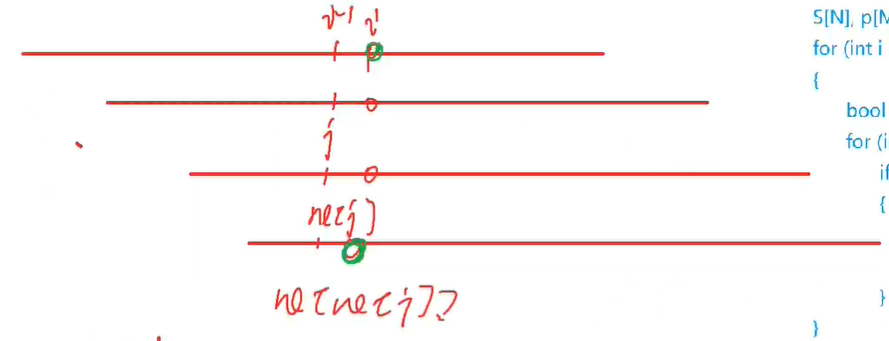 i-1 i
j
ne[j]
ne[ne[j]]
S[N], p[M
for (int i
{
bool
for (i
if
{
}
}